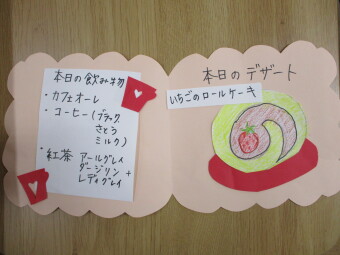 本日の飲み物
・カフェオーレ
・コーヒー(ブラック
さとう
ミルク)
・紅茶 アールグレイ
ダージリン +
レディグレイ
本日のデザート
いちごのロールケーキ